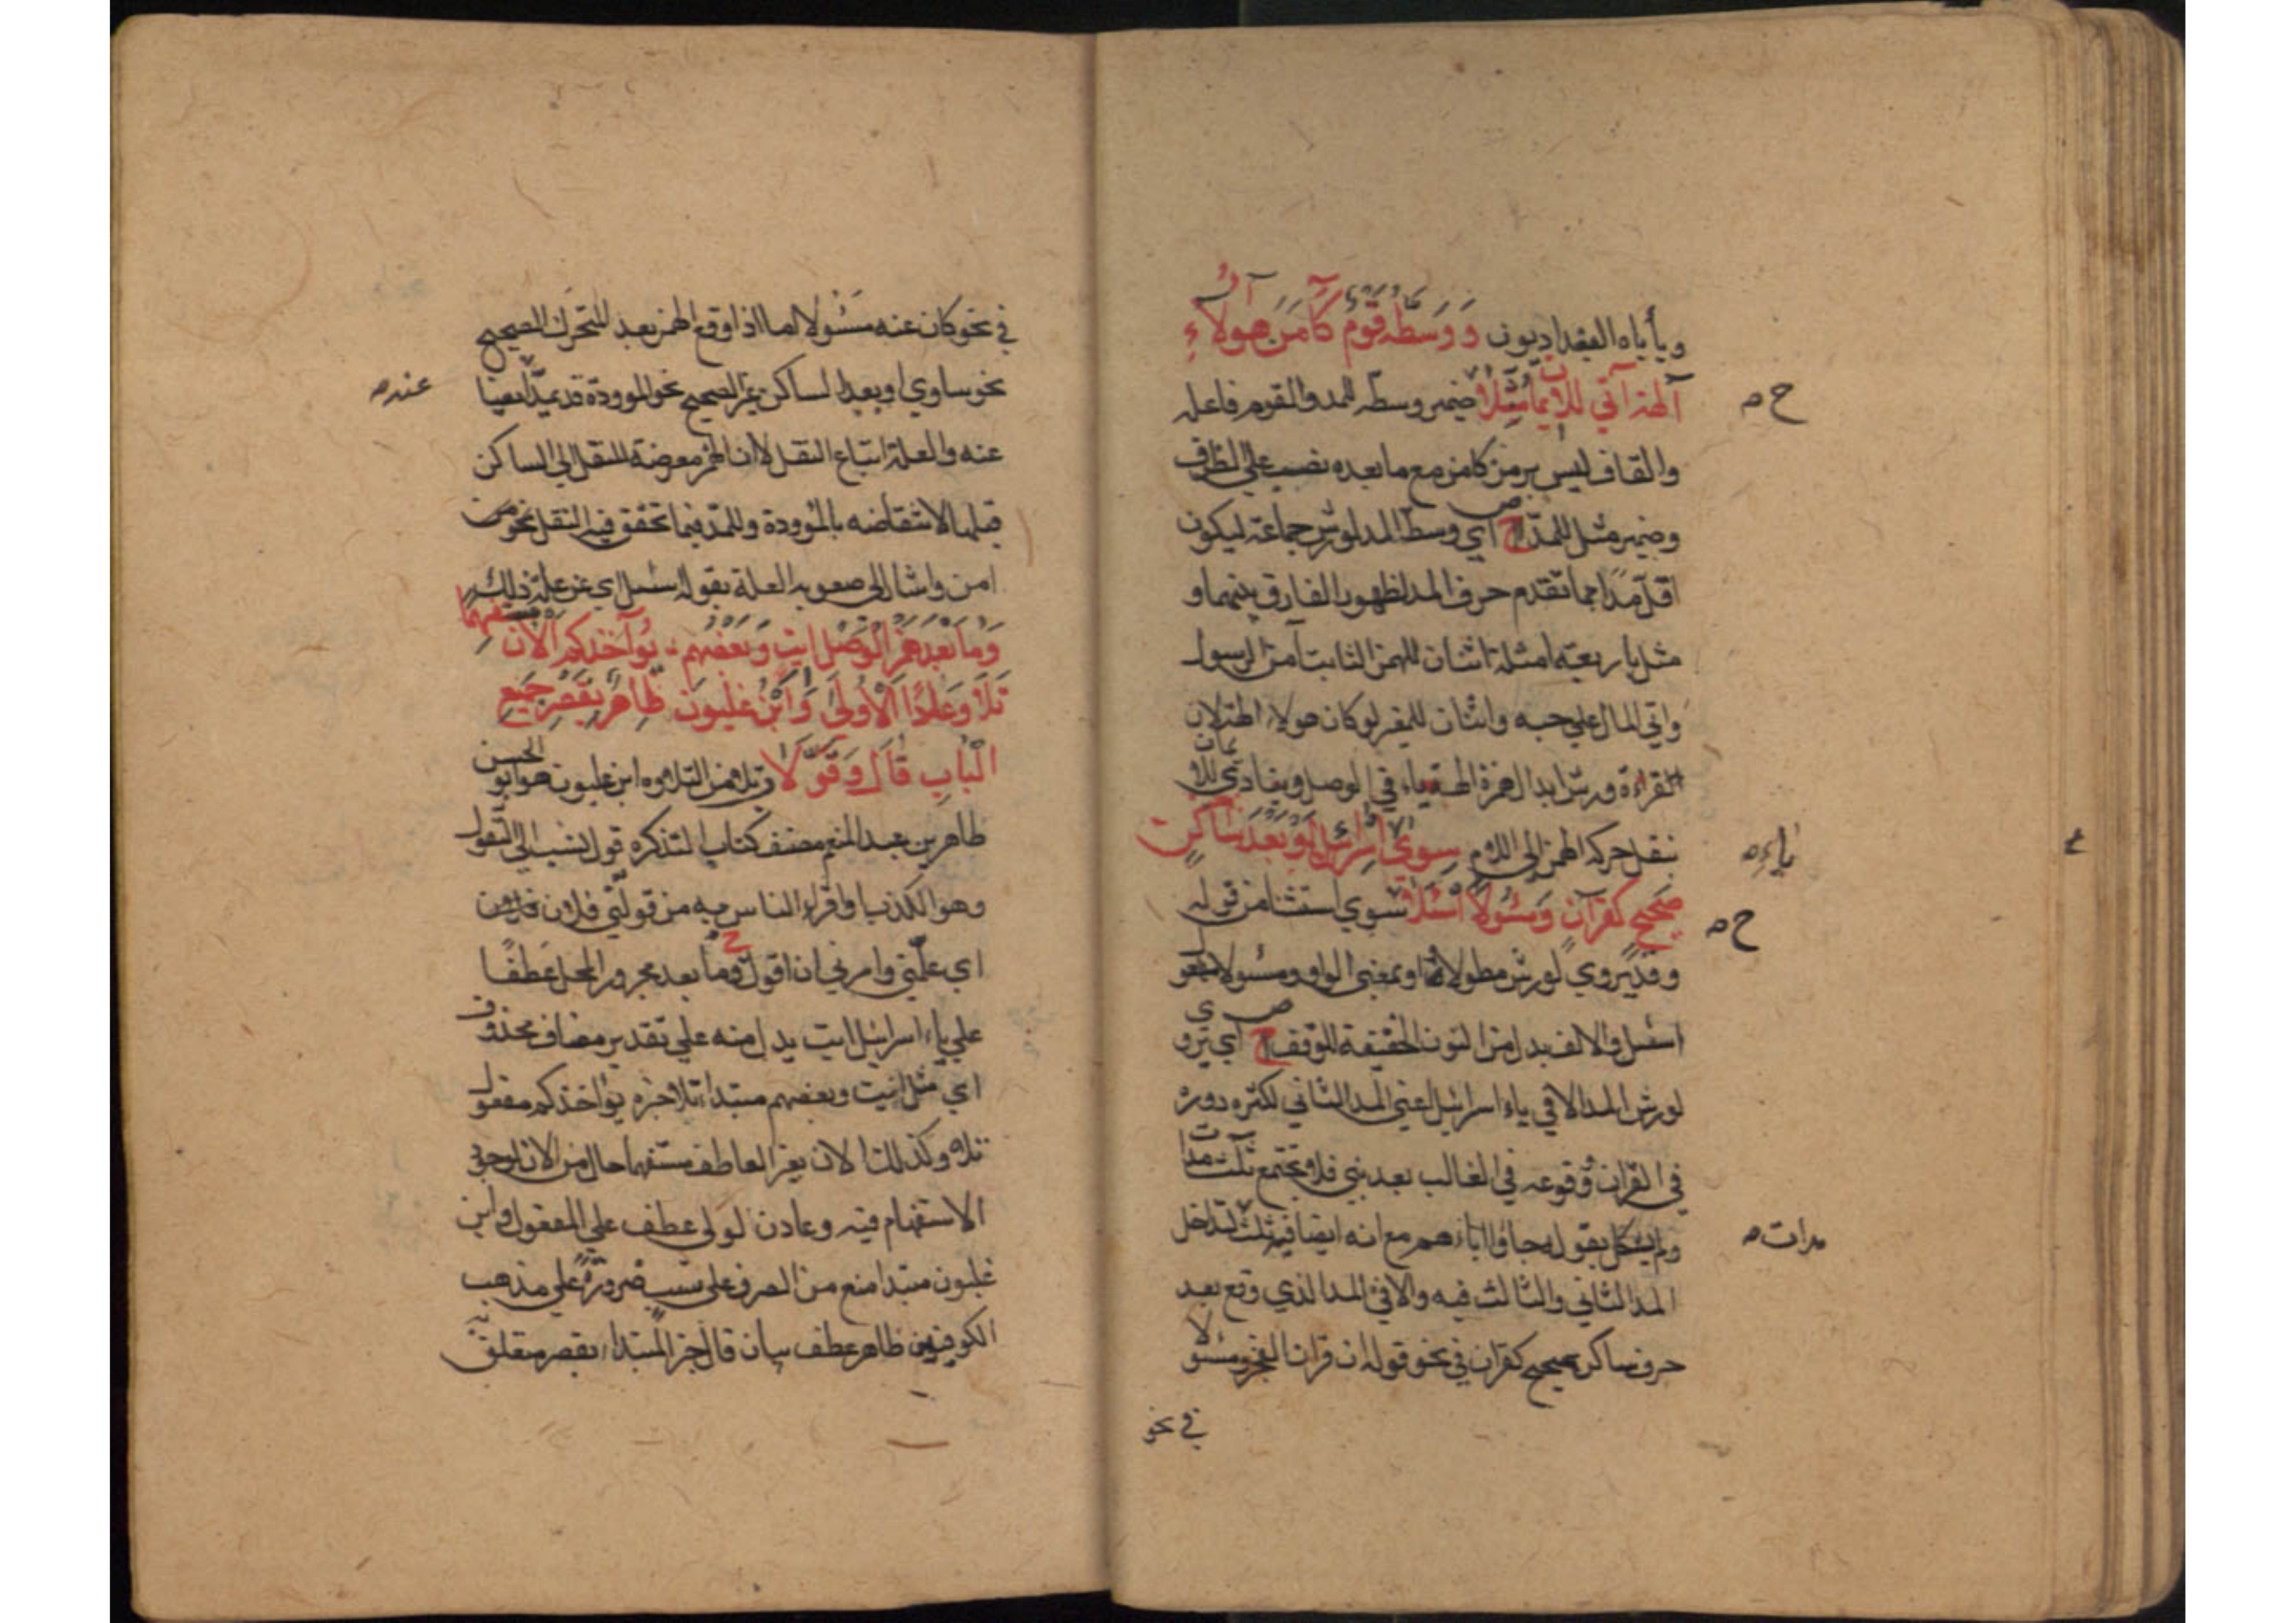 ويأباه البغداديون وَوَسَّطَهُ قَوْمٌ كَآمَنَ هؤلاءِ
آلهة آتى للايمان مثلا ضمير وسطه للمد والقوم فاعله
والقاف ليس برمز كامن مع ما بعده نصب على الظرف
وضمير مثل للمد ح اي وسط المد لورش جماعة ليكون
اقل مدا مما تقدم حرف المد لظهور الفارق بينهما و
مثل باربعة امثلة اثنان للهمز الثابت آمن الرسول
واتي المال علي حبه واثنان للمغير لو كان هولاء الهة لان
القراءة ورش ابدال همزة الهة ياء في الوصل وينادي للايمان
بنقل حركة الهمز الى اللام سِوى ياء اسرائيل او بعد ساكن
صحيح كقرآن ومسئولا اسئلا سوي استثنا من قوله
وقد يروي لورش مطولا او بمعنى الواو ومسئولا
اسئل والالف بدل من النون الخفيفة للوقف ح اي يروي
لورش المد الا في ياء اسرائيل اعني المد الثاني لكثرة دوره
في القران وقوعه في الغالب بعد بني فلا تجتمع ثلث مدات
ولم يشكل بقوله جاؤا اباءهم مع انه ايضا فيه ثلث لتداخل
المد الثاني والثالث فيه والا في المد الذي وقع بعد
حرف ساكن صحيح كقران في نحو قوله ان قران الفجر ومسئولا
في نحو
ح
ياء
ح
مدات
في نحو كان عنه مَسْئُولا اما اذا وقع الهمز بعد المتحرك الصحيح
نحو ساوي او بعد الساكن غير الصحيح نحو الموودة قد يمد ايضا
عنده
عنه والعلة اتباع النقل لا ان الهمز معرضة للنقل الى الساكن
قبلها لانتقاضه بالموودة وللمد فيما تحقق فيه النقل نحو من
امن واشار الى صعوبة العلة بقوله اسئل اي عن علة ذلك
وَمَا بَعْدَ هَمْزِ الْوَصْلِ ايتِ وَبَعْضُهُمْ يُؤَاخِذُكُمُ آلآنَ مستفهما
تَلَا وَعَادًا الْأُولَى وَابْنُ غَلْبُونَ طَاهِرٌ بِقَصْرِ جَمِيعِ
الْبَابِ قَالَ وَقَوَّلَا وتلا من التلاوة ابن غلبون هو ابو الحسن
طاهر بن عبد المنعم مصنف كتاب التذكرة قول نسب الى التقول
وهو الكذب او اقراء الناس به من قولني فلان
اي علمني وامرني ان اقول ح وما بعد مجرور المحل عطفًا
علي ياء اسرائيل ايت بدل منه علي تقدير مضاف محذوف
اي مثل ايت وبعضهم مبتدا تلا خبره يؤاخذكم مفعول
تلا وكذلك الان بغير العاطف مستفهما حال من الان لوجود
الاستفهام فيه وعادن لولى عطف علي المفعول وابن
غلبون مبتدا منع من الصرف ضرورة علي مذهب
الكوفيين طاهر عطف بيان قال خبر المبتداء بقصر متعلق